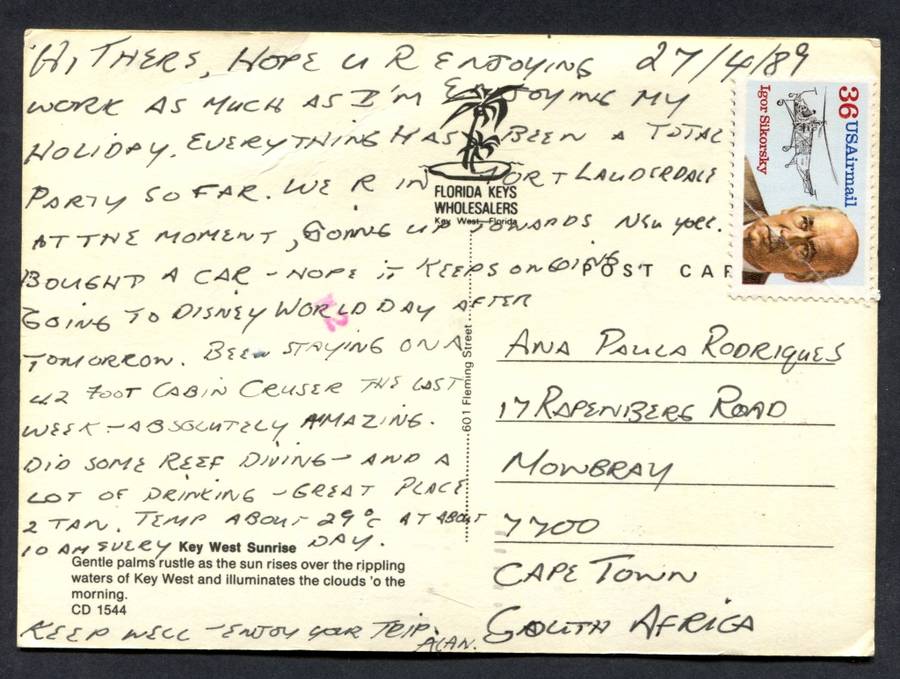 HI THERE, HOPE U R ENJOYING 27/4/89
WORK AS MUCH AS I'M ENJOYING MY
HOLIDAY. EVERYTHING HAS BEEN A TOTAL
PARTY SO FAR. WE R IN FORT LAUDERDALE
AT THE MOMENT, GOING UP TOWARDS NEW YORK.
BOUGHT A CAR - HOPE IT KEEPS ON GOING
GOING TO DISNEY WORLD DAY AFTER
TOMORROW. BEEN STAYING ON A
42 FOOT CABIN CRUSER THE LAST
WEEK - ABSOLUTELY AMAZING.
DID SOME REEF DIVING - AND A
LOT OF DRINKING - GREAT PLACE
2 TAN. TEMP ABOUT 29°C AT ABOUT
10 AM EVERY DAY.
Key West Sunrise
Gentle palms rustle as the sun rises over the rippling
waters of Key West and illuminates the clouds 'o the
morning.
CD 1544
KEEP WELL - ENJOY YOUR TRIP.
ALAN.
FLORIDA KEYS
WHOLESALERS
Key West, Florida
601 Fleming Street
POST CAR
36 USAirmail
Igor Sikorsky
ANA PAULA RODRIQUES
17 RAPENBERG ROAD
MOWBRAY
7700
CAPE TOWN
SOUTH AFRICA